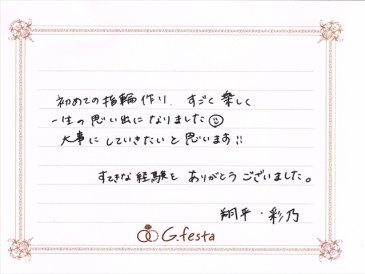 初めての指輪作り、すごく楽しく
一生の思い出になりました☺
大事にしていきたいと思います!!
すてきな経験をありがとうございました。
翔平・彩乃
G.festa